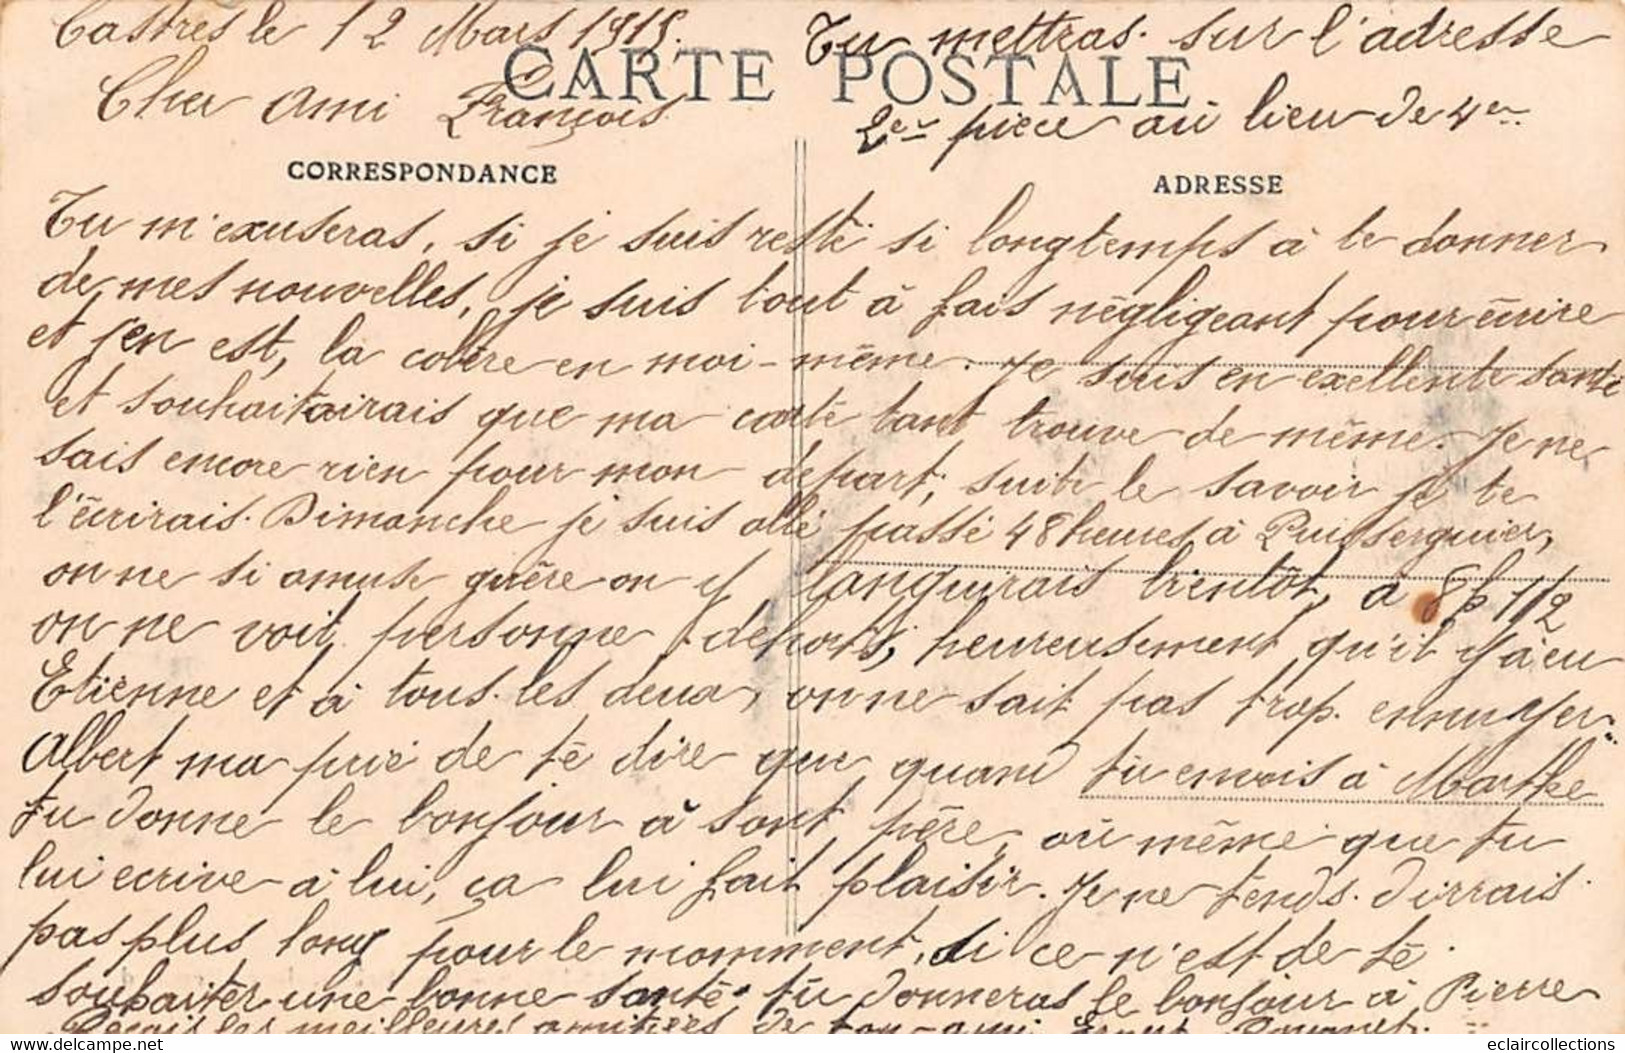 Castres le 12 Mars 1915.
Tu mettras sur l'adresse
CARTE POSTALE
Cher Ami François
2er pièce au lieu de 4er
CORRESPONDANCE
ADRESSE
Tu m'exuseras, si je suis resté si longtemps à te donner
de mes nouvelles, je suis tout à fais négligeant pour écrire
et j'en est, la colère en moi-même. Je suis en exellente santé
et souhaitairais que ma carte tant trouve de même. Je ne
sais encore rien pour mon depart, suite le savoir je te
l'écrirais. Dimanche je suis allé passé 48 heures à Puisserguier,
on ne si amuse guère on y languirais bientôt, à 8h 1/2
on ne voit personne dehors, heureusement qu'il y à eu
Etienne et à tous les deux, on ne sait pas trop ennuyer.
Albert ma prié de té dire que quand tu envois à Marthe
tu donne le bonjour à sont père, où même que tu
lui ecrive à lui, ça lui fait plaisir. Je ne tends dirrais
pas plus long pour le momment, si ce n'est de té
souhaiter une bonne santé. tu donneras le bonjour à Pierre
Reçois les meilleures amitiées de ton ami Ernest
eclaircollections
www.delcampe.net